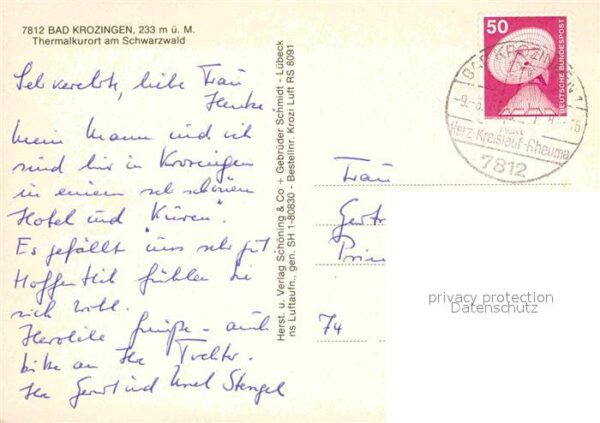 7812 BAD KROZINGEN, 233 m ü. M.
Thermalkurort am Schwarzwald
Sehr verehrte, liebe Frau
Henke
mein Mann und ich
sind hier in Krozingen
in einem sehr schönen
Hotel und "Kuren".
Es gefällt uns sehr gut
Hoffentlich fühlen Sie
sich wohl.
Herzliche Grüße - auch
bitte an Ihre Tochter.
Ihre Gerd und Stengel
Herst. u. Verlag Schöning & Co + Gebrüder Schmidt - Lübeck
ns Luftaufn., gen. SH 1-80830 - Bestellnr. Krozi Luft RS 8091
50
DEUTSCHE BUNDESPOST
BAD KROZINGEN 1
Herz-Kreislauf-Rheuma
7812
Frau
Gertr
Prin
74
privacy protection
Datenschutz